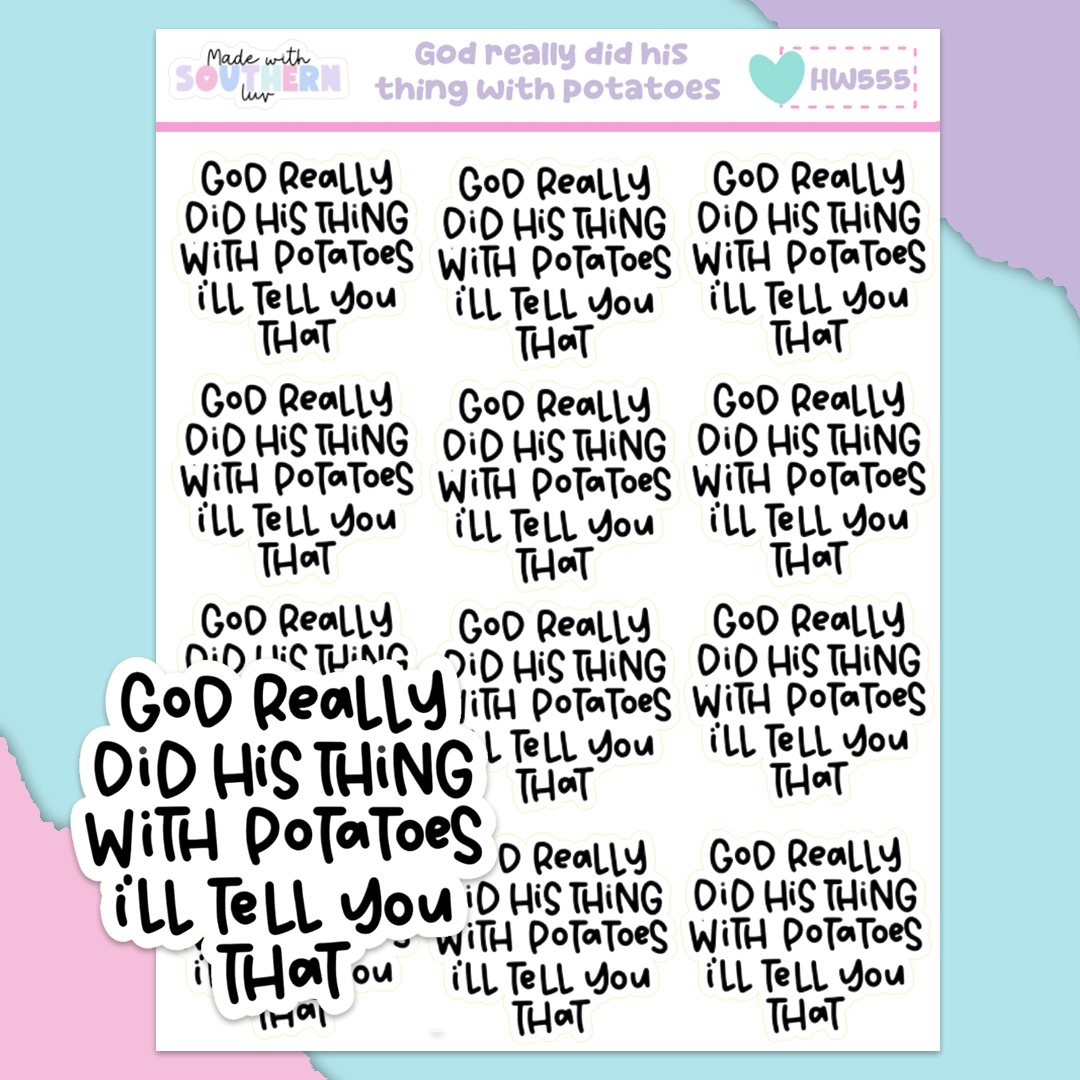 Made with
SOUTHERN
luv
God really did his
thing with potatoes
HW555
GoD ReaLLy
DiD HiS THiNG
WiTH PoTaToeS
i'LL TeLL you
THaT
GoD ReaLLy
DiD HiS THiNG
WiTH PoTaToeS
i'LL TeLL you
THaT
GoD ReaLLy
DiD HiS THiNG
WiTH PoTaToeS
i'LL TeLL you
THaT
GoD ReaLLy
DiD HiS THiNG
WiTH PoTaToeS
i'LL TeLL you
THaT
GoD ReaLLy
DiD HiS THiNG
WiTH PoTaToeS
i'LL TeLL you
THaT
GoD ReaLLy
DiD HiS THiNG
WiTH PoTaToeS
i'LL TeLL you
THaT
GoD ReaLLy
DiD HiS THiNG
GoD ReaLLy
DiD HiS THiNG
WiTH PoTaToeS
TeLL you
THaT
GoD ReaLLy
DiD HiS THiNG
WiTH PoTaToeS
i'LL TeLL you
THaT
GoD ReaLLy
DiD HiS THiNG
WiTH PoTaToeS
i'LL TeLL you
THaT
THaT
ReaLLy
DiD HiS THiNG
WiTH PoTaToeS
i'LL TeLL you
THaT
GoD ReaLLy
DiD HiS THiNG
WiTH PoTaToeS
i'LL TeLL you
THaT